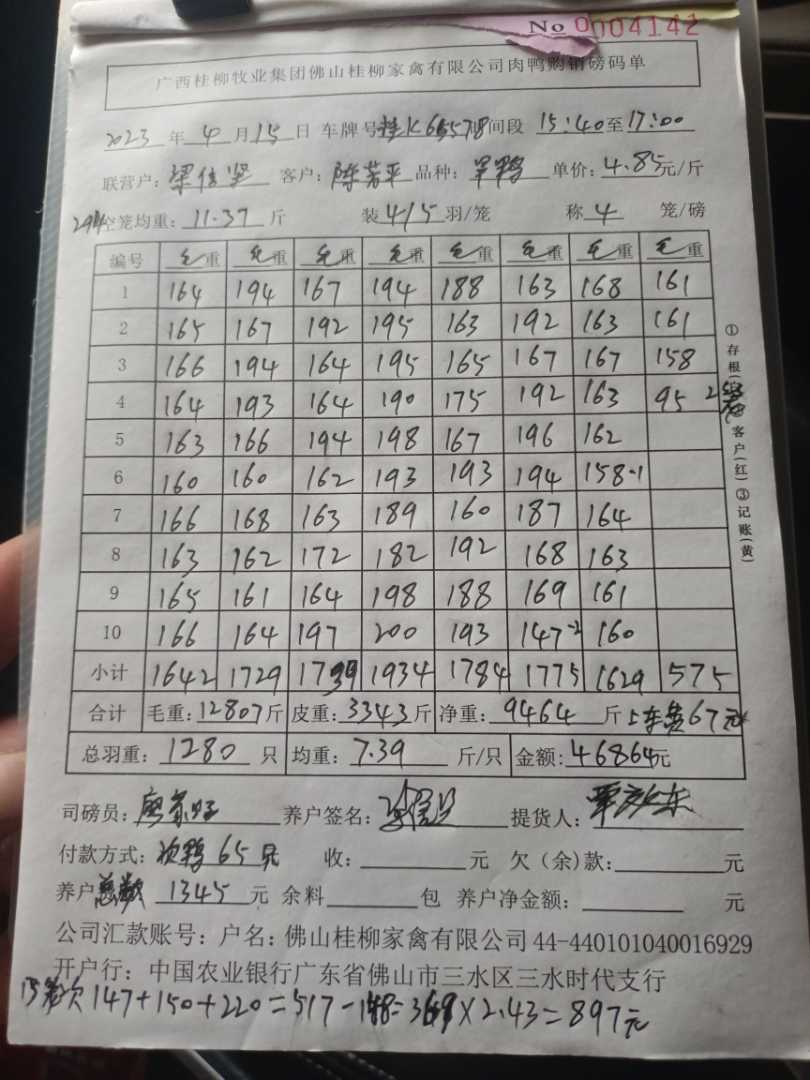 No 0004142
广西桂柳牧业集团佛山桂柳家禽有限公司肉鸭购销磅码单
2023 年 4 月 15 日 车牌号 桂K65578 时间段 15:40 至 17:00
联营户: 梁信坚 客户: 陈芳平 品种: 单价: 4.85 元/斤
294 空笼均重: 11.37 斤 装 4/5 羽/笼 称 4 笼/磅
编号 毛重 毛重 毛重 毛重 毛重 毛重 毛重 毛重
1 164 194 167 194 188 163 168 161
2 165 167 192 195 163 192 163 161
3 166 194 164 195 165 167 167 158
4 164 193 164 190 175 192 163 95 2
5 163 166 194 198 167 196 162
6 160 160 162 193 193 194 158-1
7 166 168 163 189 160 187 164
8 163 162 172 182 192 168 163
9 165 161 164 198 188 169 161
10 166 164 197 200 193 147-2 160
小计 1642 1729 1739 1934 1784 1775 1629 575
合计 毛重: 12807 斤 皮重: 3343 斤 净重: 9464 斤 上车费67元
总羽重: 1280 只 均重: 7.39 斤/只 金额: 46864元
①存根( 客户(红)③记账(黄)
司磅员: 养户签名: 提货人:
付款方式: 次鸭65只 收: 元 欠(余)款: 元
养户总数 1345 元 余料 包 养户净金额: 元
公司汇款账号: 户名: 佛山桂柳家禽有限公司 44-440101040016929
开户行: 中国农业银行广东省佛山市三水区三水时代支行
13笼次 147+150+220=517-148=369×2.43=897元